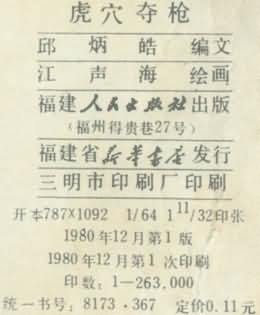 虎穴夺枪
邱炳皓 编文
江声海 绘画
福建人民出版社出版
（福州得贵巷27号）
福建省新华书店发行
三明市印刷厂印刷
开本787×1092 1/64 1 11/32印张
1980年12月第1版
1980年12月第1次印刷
印数：1—263,000
统一书号：8173·367 定价0.11元